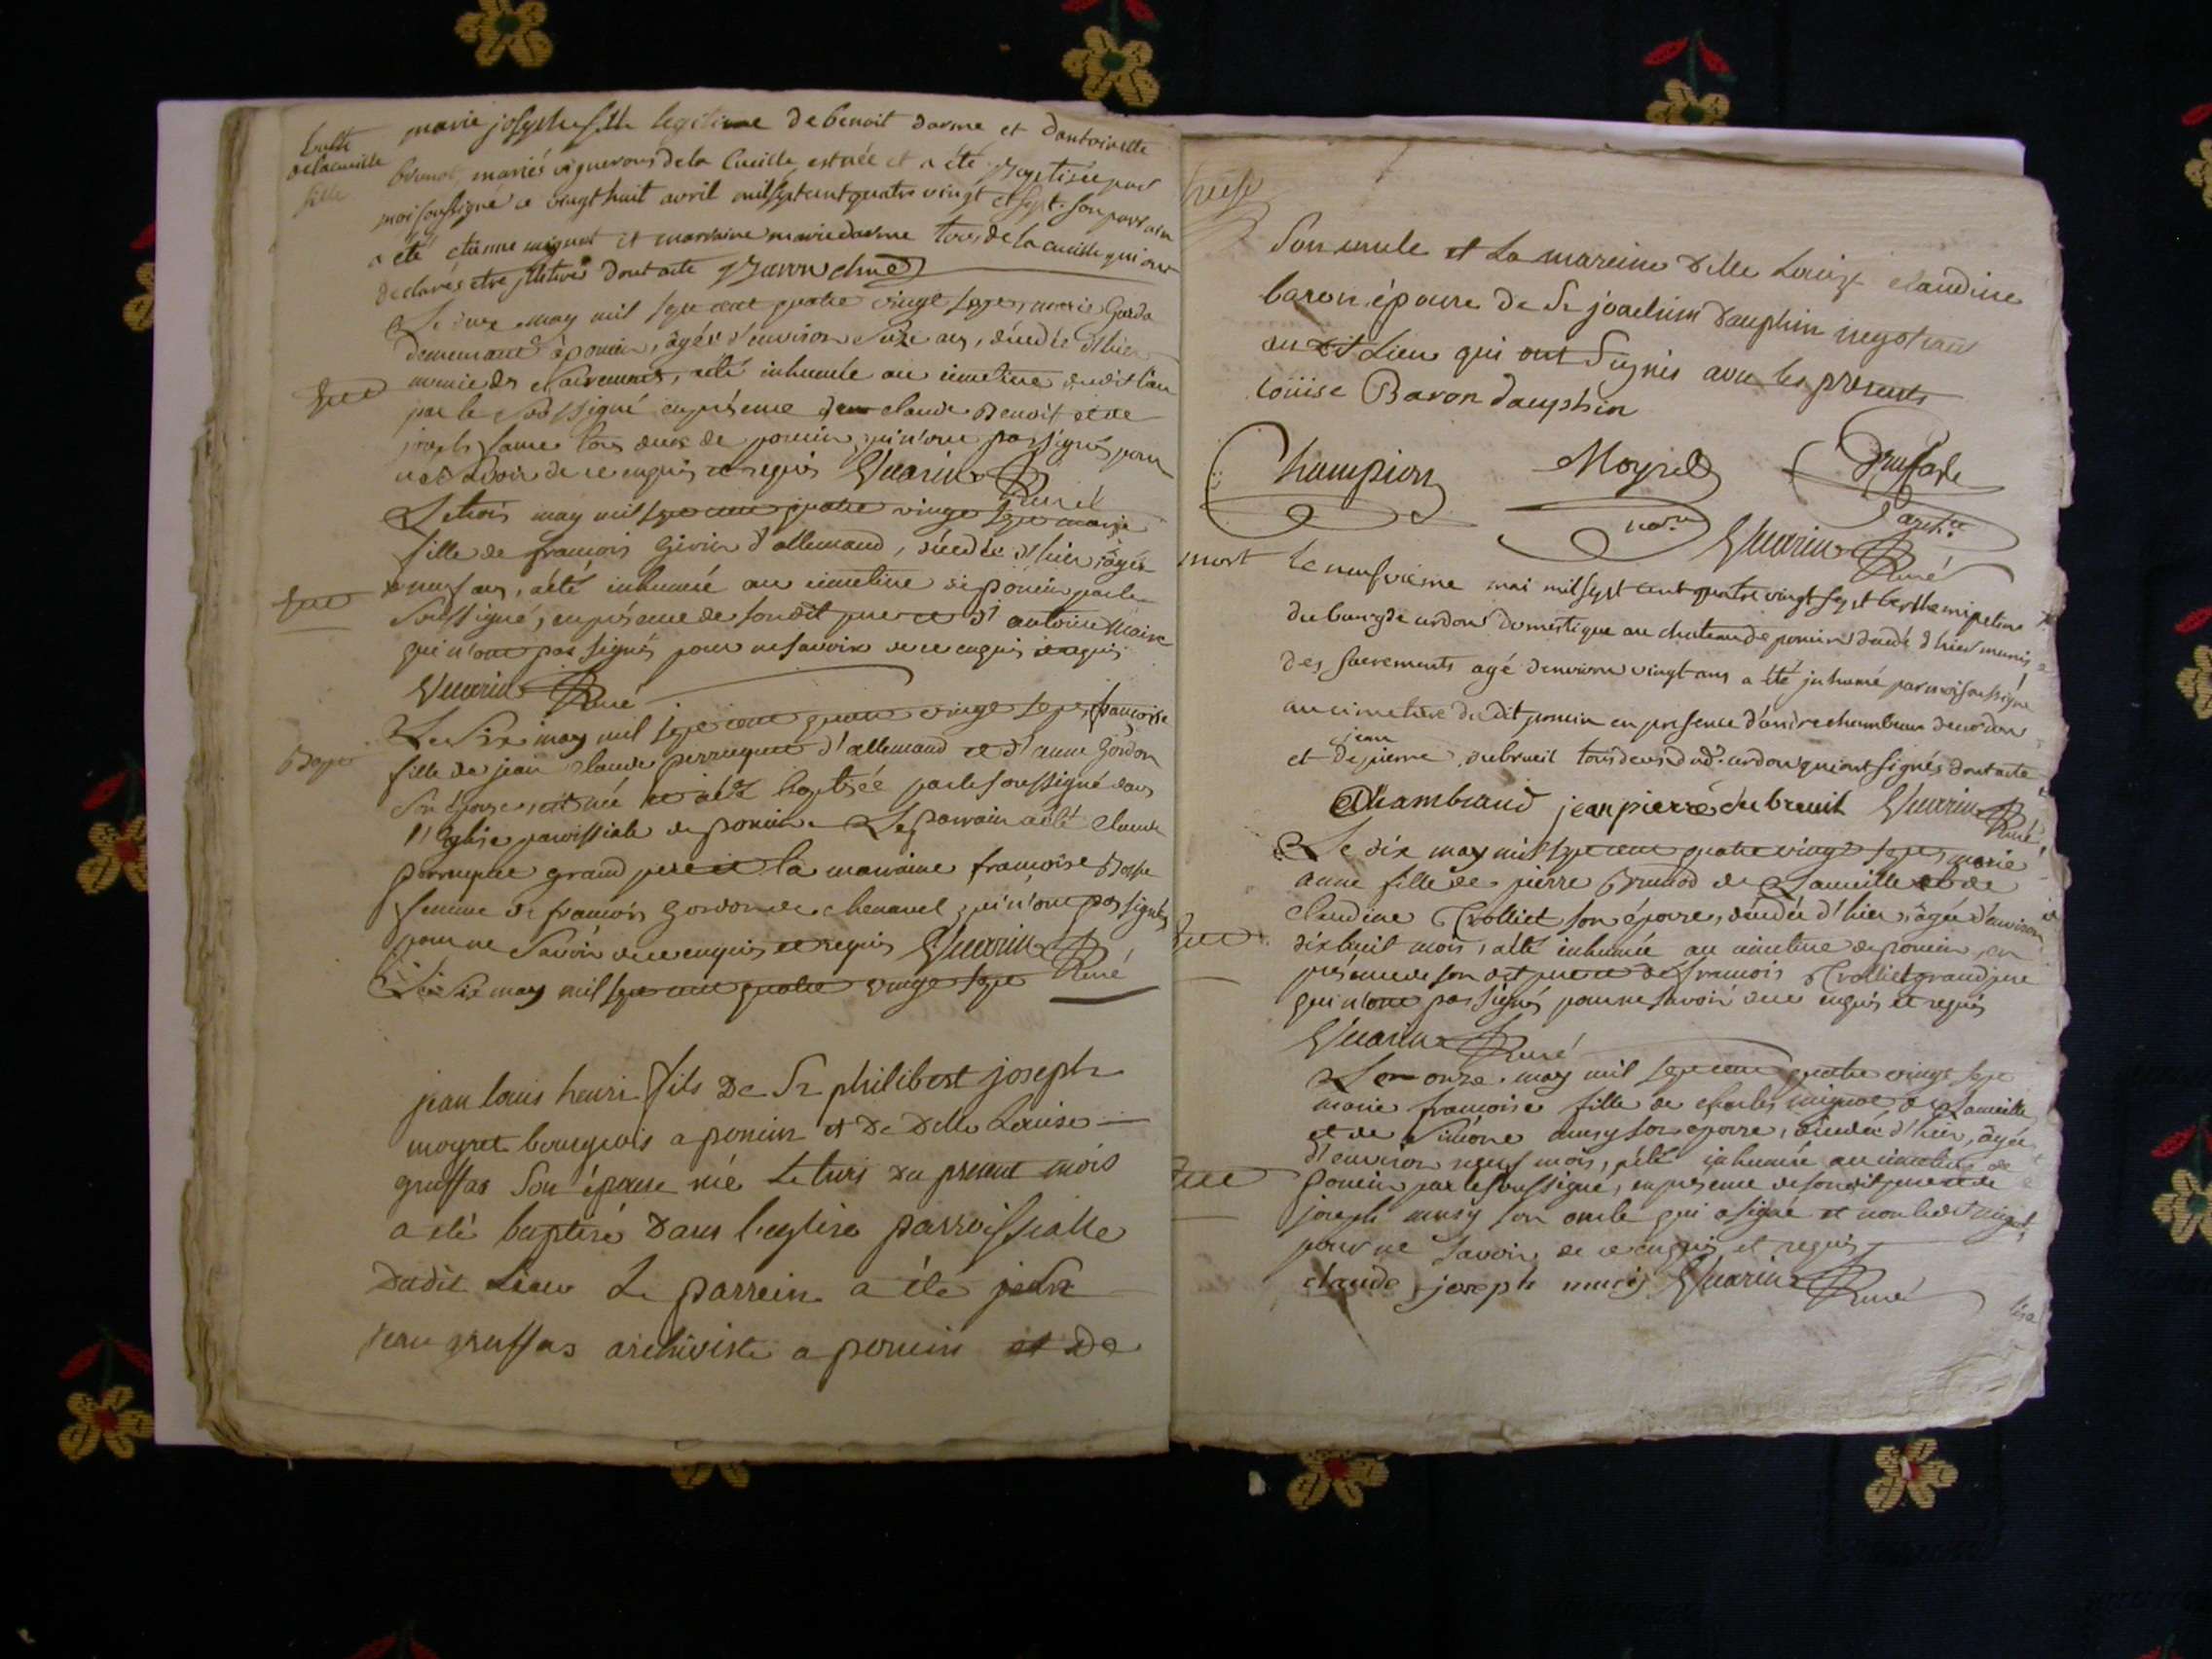 marie josephe fille legitime de benoit darme et d'antoinette
brunod, mariés vignerons de la Cueille, est née et a été Baptisée par
moi soussigné ce vingt huit avril mil sept cent quatre vingt et sept. son parrain
a été etienne mignot et marraine marie darme tous de la cueille qui ont
declarés etre illiterés dont acte
Le deux may mil sept cent quatre vingt sept, marie
demeurant à poncin, agée d'environ ans, décédée d'hier
munie des Sacrements, a été inhumée au cimetiere dudit lieu
par le Soussigné en présence de claude Benoit et de
joseph tous deux de poncin qui n'ont pas signés pour
ne Savoir de ce enquis et requis Guarin Curé
Le trois may mil sept cent quatre vingt sept marie
fille de francois Givin d'allemand, décédée d'hier, agée
de neuf ans, a été inhumée au cimetiere de poncin par le
Soussigné, en présence de son dit pere et d'antoine Maire
qui n'ont pas signés pour ne savoir de ce enquis et requis
Guarin Curé
Bap
Le Six may mil sept cent quatre vingt sept, francoise
fille de jean claude perruquet d'allemand et d'anne Gordon
son épouse, est née et a été baptisée par le soussigné dans
l'Eglise paroissiale de poncin. Le parrain a été Claude
perruquet grand pere et la marraine francoise
femme de francois Gordon de chenavel, qui n'ont pas signés
pour ne Savoir de ce enquis et requis Guarin Curé
Le Six may mil sept cent quatre vingt sept
jean louis henri fils De Sr philibert joseph
moyret bourgeois a poncin et De Delle Louise
gruffas Son épouse né le trois du present mois
a eté baptisé Dans l'eglise parroissialle
Dudit Lieu Le parrein a été
jean gruffas archiviste a poncin et De
Son oncle et La mareine Delle Louise claudine
baron épouse De Sr joachim dauphin negotiant
au dit Lieu qui ont Signés avec les presents
Louise Baron dauphin
Champion Moyret Gruffas
nore archte
Guarin Curé
mort
le neufvieme mai mil sept cent quatre vingt sept
du bourg de cerdon domestique au chateau de poncin décédé d'hier munis
des sacrements agé denviron vingt ans a été inhumé par moi soussigné
au cimetiere dudit poncin en presence d'andre chambaud de cerdon
et de jean pierre dubreuil tous deux dud. cerdon qui ont signés dont acte
Chambaud jean pierre dubreuil Guarin Curé
Le dix may mil sept cent quatre vingt sept, marie
anne fille de pierre Brunod de La cueille et de
claudine Crolliet son épouse, décédée d'hier, agée d'environ
dix huit mois, a été inhumée au cimetiere de poncin, en
présence de son dit pere et de francois Crolliet grand pere
qui n'ont pas signés pour ne savoir de ce enquis et requis
Guarin Curé
Le onze may mil sept cent quatre vingt sept
marie francoise fille de charles mignot de La cueille
et de Simone musy son epouse, décédée d'hier, âgée
d'environ neuf mois, a été inhumée au cimetiere de
poncin par le soussigné, en présence de son dit pere et de
joseph musy son oncle qui a signé et non ledit mignot,
pour ne Savoir de ce enquis et requis
claude joseph Guarin Curé